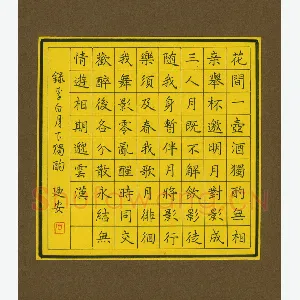 花間一壺酒獨酌無相
親舉杯邀明月對影成
三人月既不解飲影徒
隨我身暫伴月將影行
樂須及春我歌月徘徊
我舞影零亂醒時同交
歡醉後各分散永結無
情遊相期邈雲漢
錄李白月下獨酌